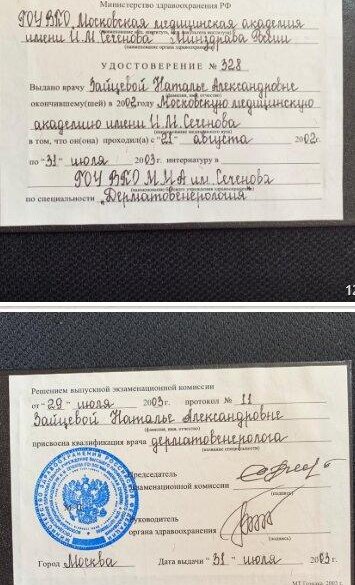 Министерство здравоохранения РФ
ГОУ ВПО, Московская медицинская академия
имени И.М. Сеченова Минздрава России
(наименование органа здравоохранения)
УДОСТОВЕРЕНИЕ № 328
Выдано врачу Зайцевой Наталье Александровне
(фамилия, имя, отчество)
окончившему(шей) в 2002 году Московскую медицинскую
академию имени И.М. Сеченова
в том, что он(она) проходил(а) с "21" августа 2002г.
по "31" июля 2003 г. интернатуру в
ГОУ ВПО ММА им. Сеченова
по специальности „Дерматовенерология"
12
Решением выпускной экзаменационной комиссии
от "29" июля 2003 г. протокол № 11
Зайцевой Наталье Александровне
(фамилия, имя, отчество)
присвоена квалификация врача дерматовенеролога
(название специальности)
Председатель
экзаменационной комиссии
(подпись)
Руководитель
органа здравоохранения
(подпись)
Город Москва Дата выдачи "31" июля 2003 г.